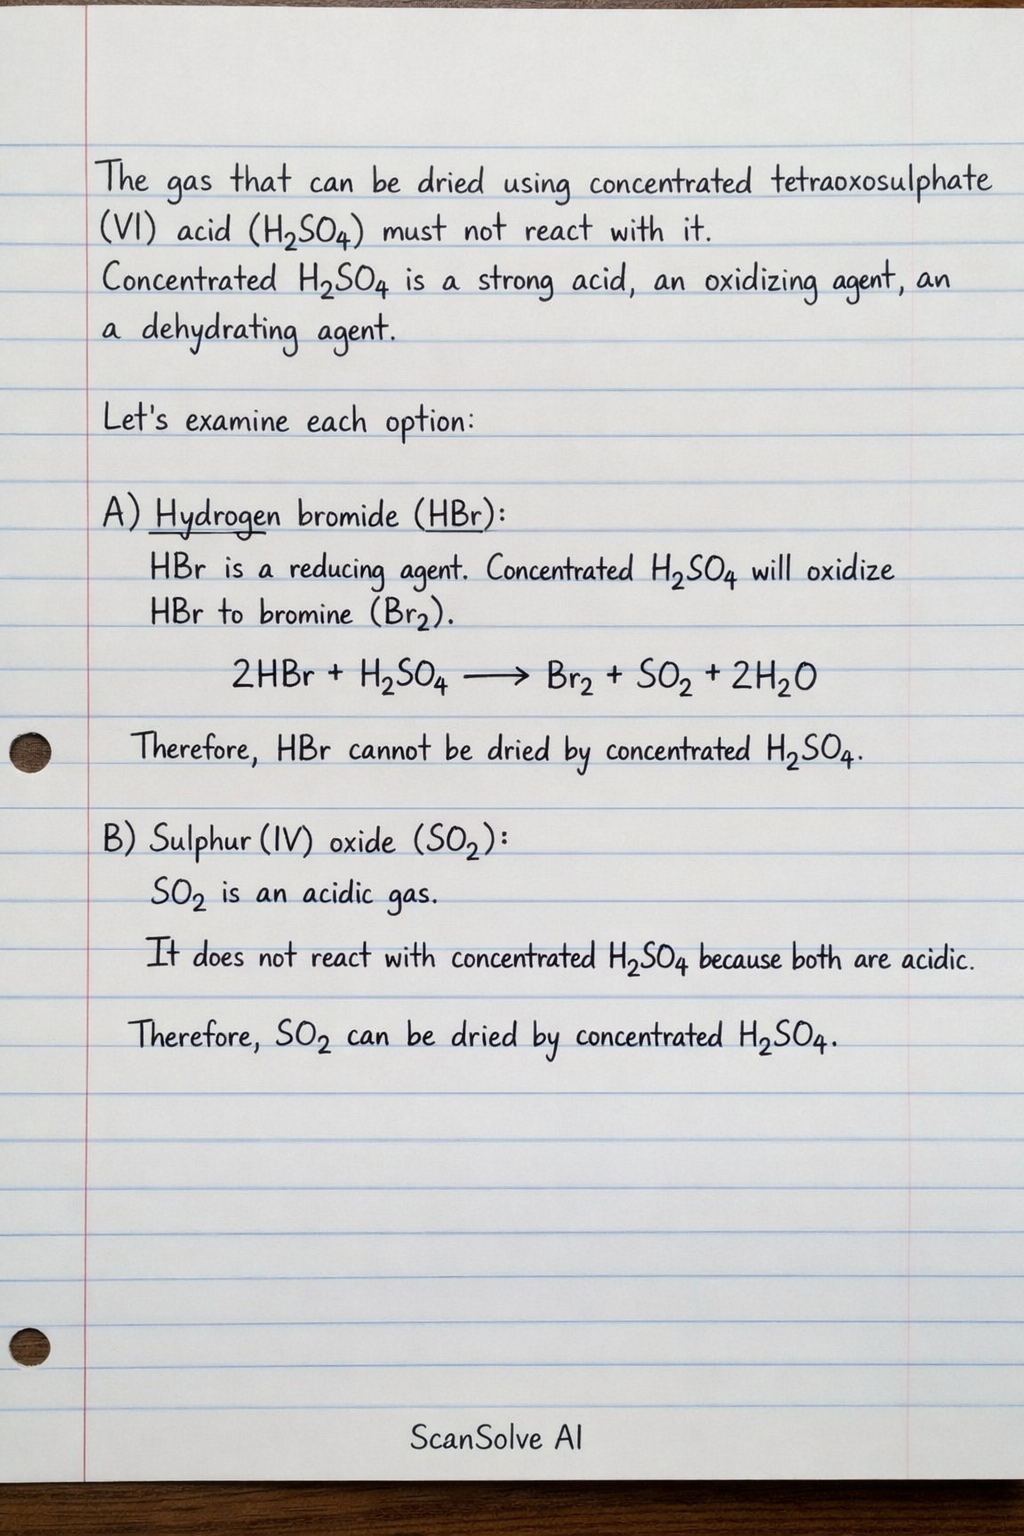 The gas that can be dried using concentrated tetraoxosulphate
(VI) acid (H₂SO₄) must not react with it.
Concentrated H₂SO₄ is a strong acid, an oxidizing agent, an
a dehydrating agent.
Let's examine each option:
A) Hydrogen bromide (HBr):
HBr is a reducing agent. Concentrated H₂SO₄ will oxidize
HBr to bromine (Br₂).
2HBr + H₂SO₄ ⟶ Br₂ + SO₂ + 2H₂O
Therefore, HBr cannot be dried by concentrated H₂SO₄.
B) Sulphur (IV) oxide (SO₂):
SO₂ is an acidic gas.
It does not react with concentrated H₂SO₄ because both are acidic.
Therefore, SO₂ can be dried by concentrated H₂SO₄.
ScanSolve AI